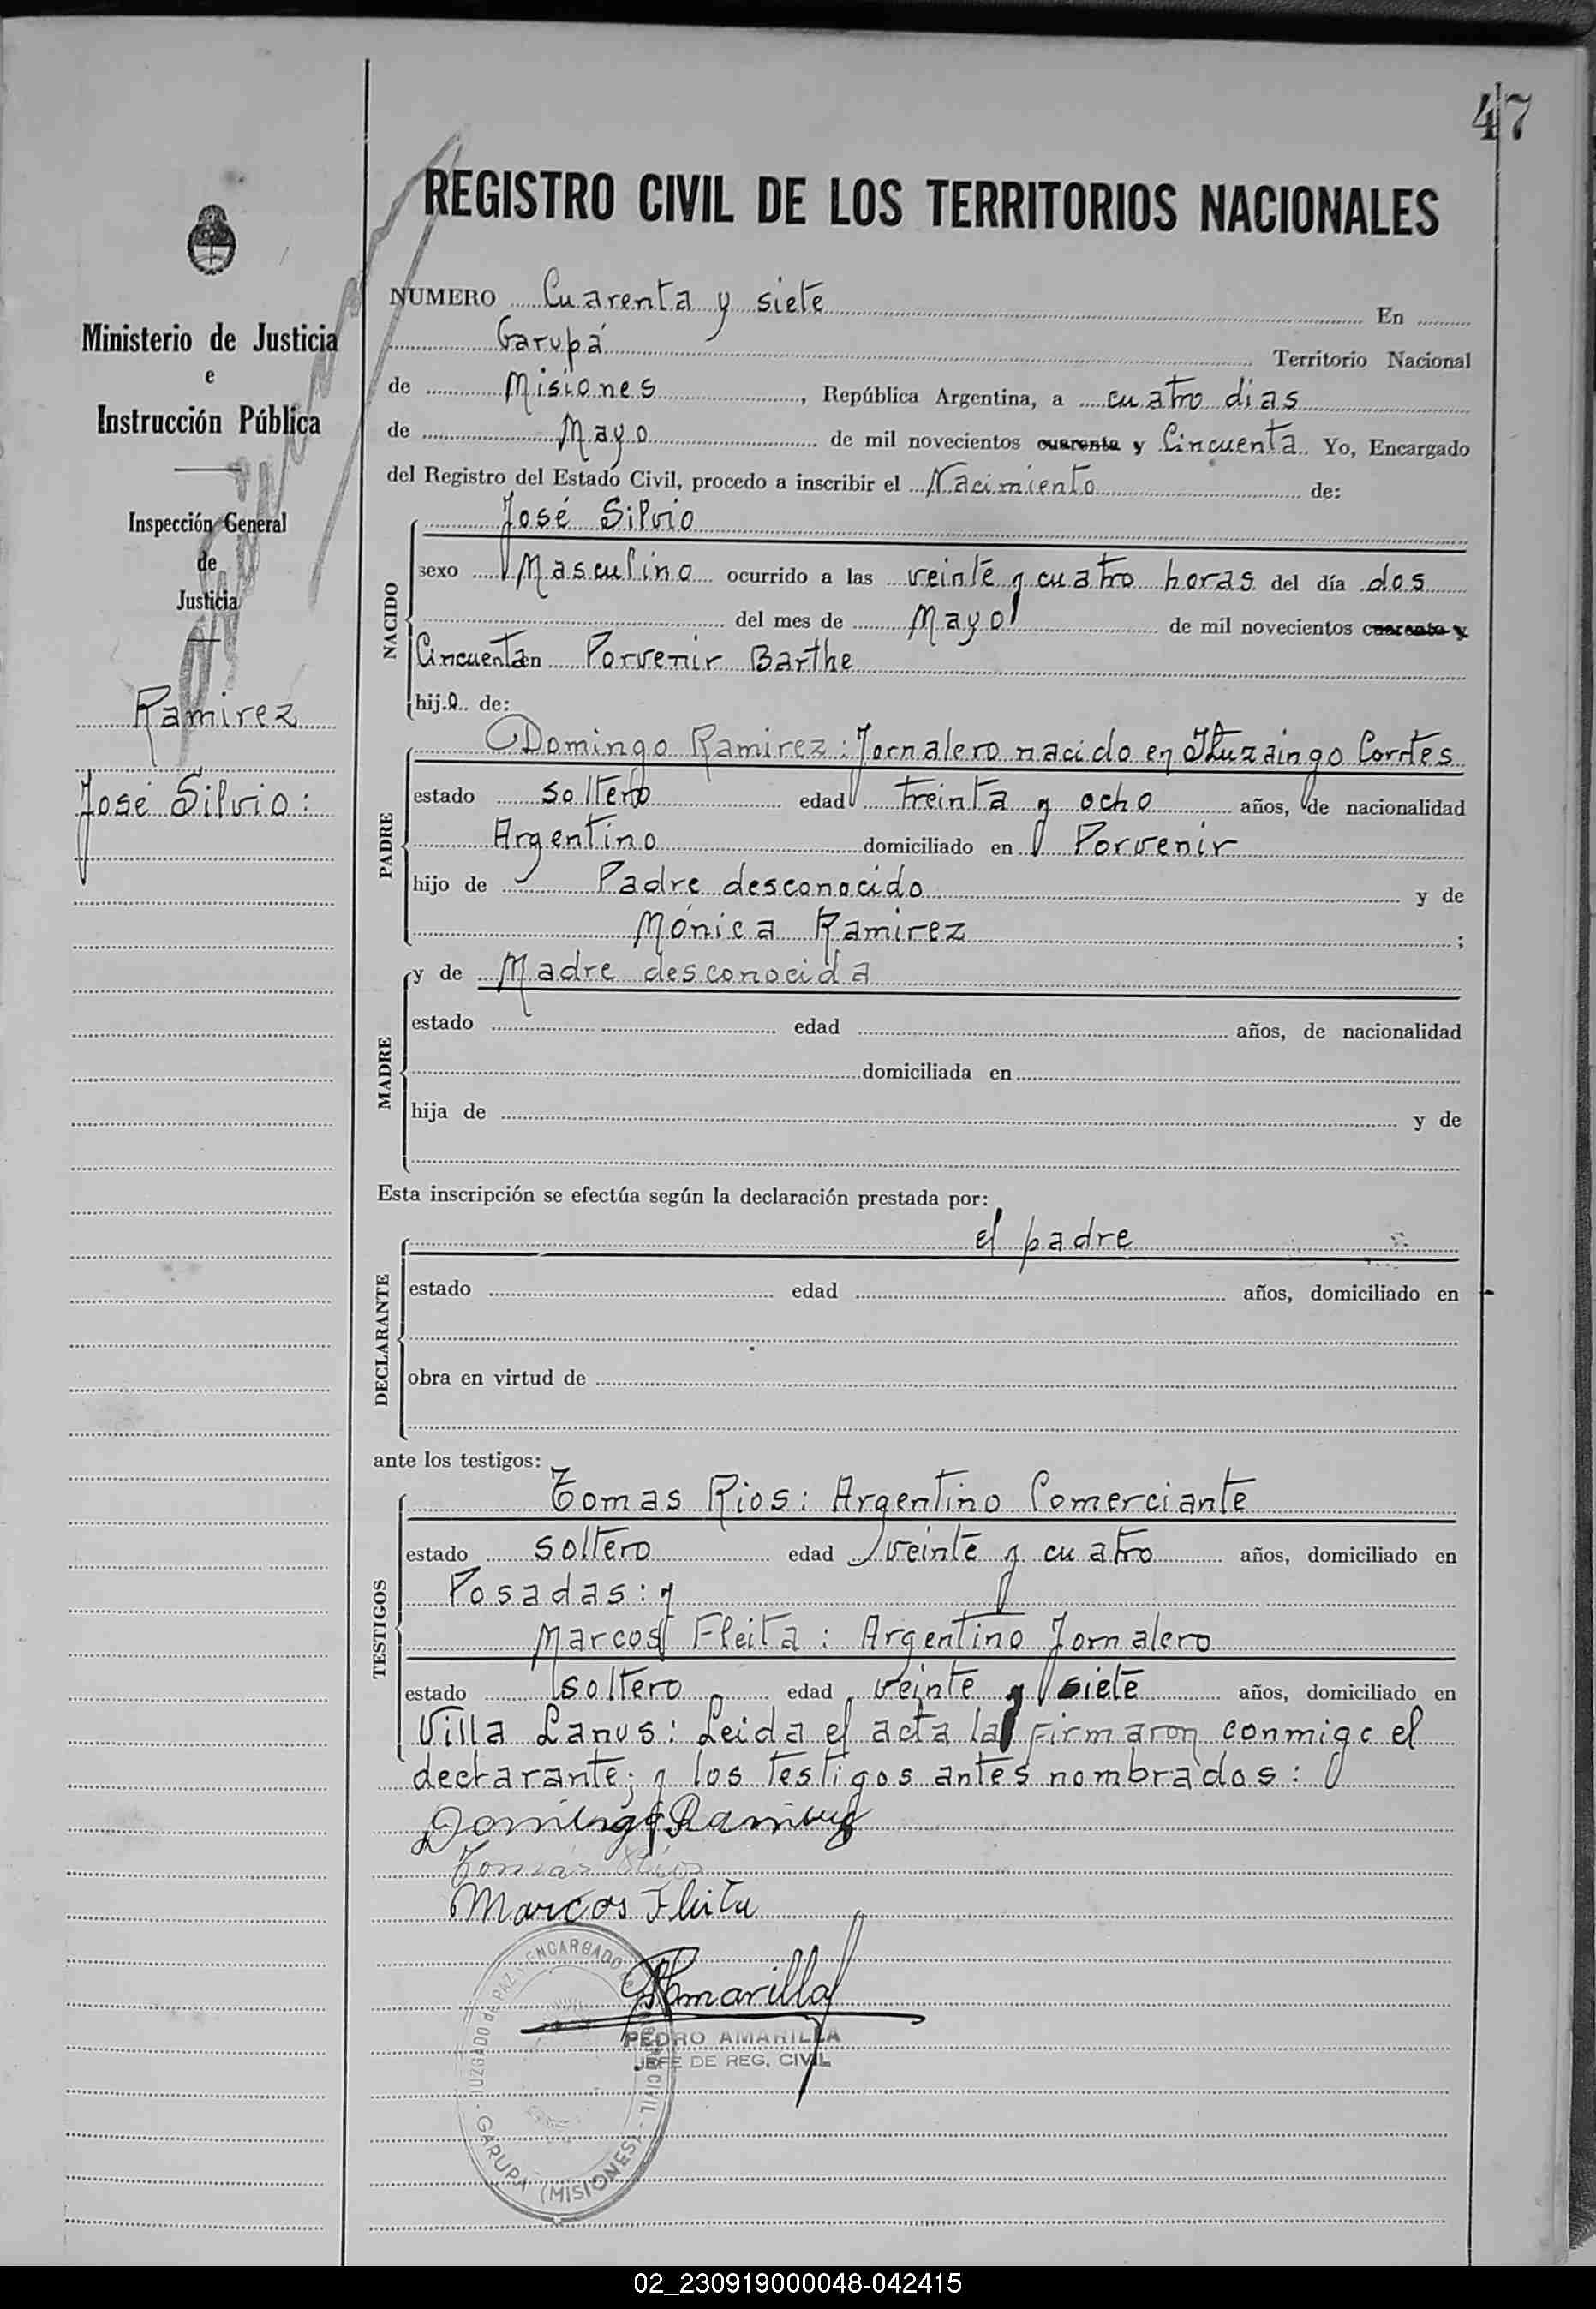 47
REGISTRO CIVIL DE LOS TERRITORIOS NACIONALES
Ministerio de Justicia
e
Instrucción Pública
Inspección General
de
Justicia
Ramirez
José Silvio:
NUMERO Cuarenta y siete En
Garupá Territorio Nacional
de Misiones, República Argentina, a cuatro dias
de Mayo de mil novecientos cuarenta y Cincuenta Yo, Encargado
del Registro del Estado Civil, procedo a inscribir el Nacimiento de:
NACIDO
José Silvio
sexo Masculino ocurrido a las veinte y cuatro horas del día dos
del mes de Mayo de mil novecientos cuarenta y
Cincuenta en Porvenir Barthe
hijo de:
PADRE
Domingo Ramirez: Jornalero nacido en Ituzaingo Corrtes
estado soltero edad treinta y ocho años, de nacionalidad
Argentino domiciliado en Porvenir
hijo de Padre desconocido y de
Mónica Ramirez ;
MADRE
y de Madre desconocida
estado edad años, de nacionalidad
domiciliada en
hija de y de
Esta inscripción se efectúa según la declaración prestada por:
DECLARANTE
el padre
estado edad años, domiciliado en
obra en virtud de
ante los testigos:
TESTIGOS
Tomas Rios: Argentino Comerciante
estado soltero edad veinte y cuatro años, domiciliado en
Posadas: y
Marcos Fleita: Argentino Jornalero
estado soltero edad veinte y siete años, domiciliado en
Villa Lanus: Leida el acta la firmaron conmigo el
declarante; y los testigos antes nombrados:
Domingo Ramirez
Tomás Rios
Marcos Fleita
PAmarilla
PEDRO AMARILLA
JEFE DE REG. CIVIL
JUZGADO de PAZ y ENCARGADO CIVIL - GARUPA (MISIONES)
02_230919000048-042415